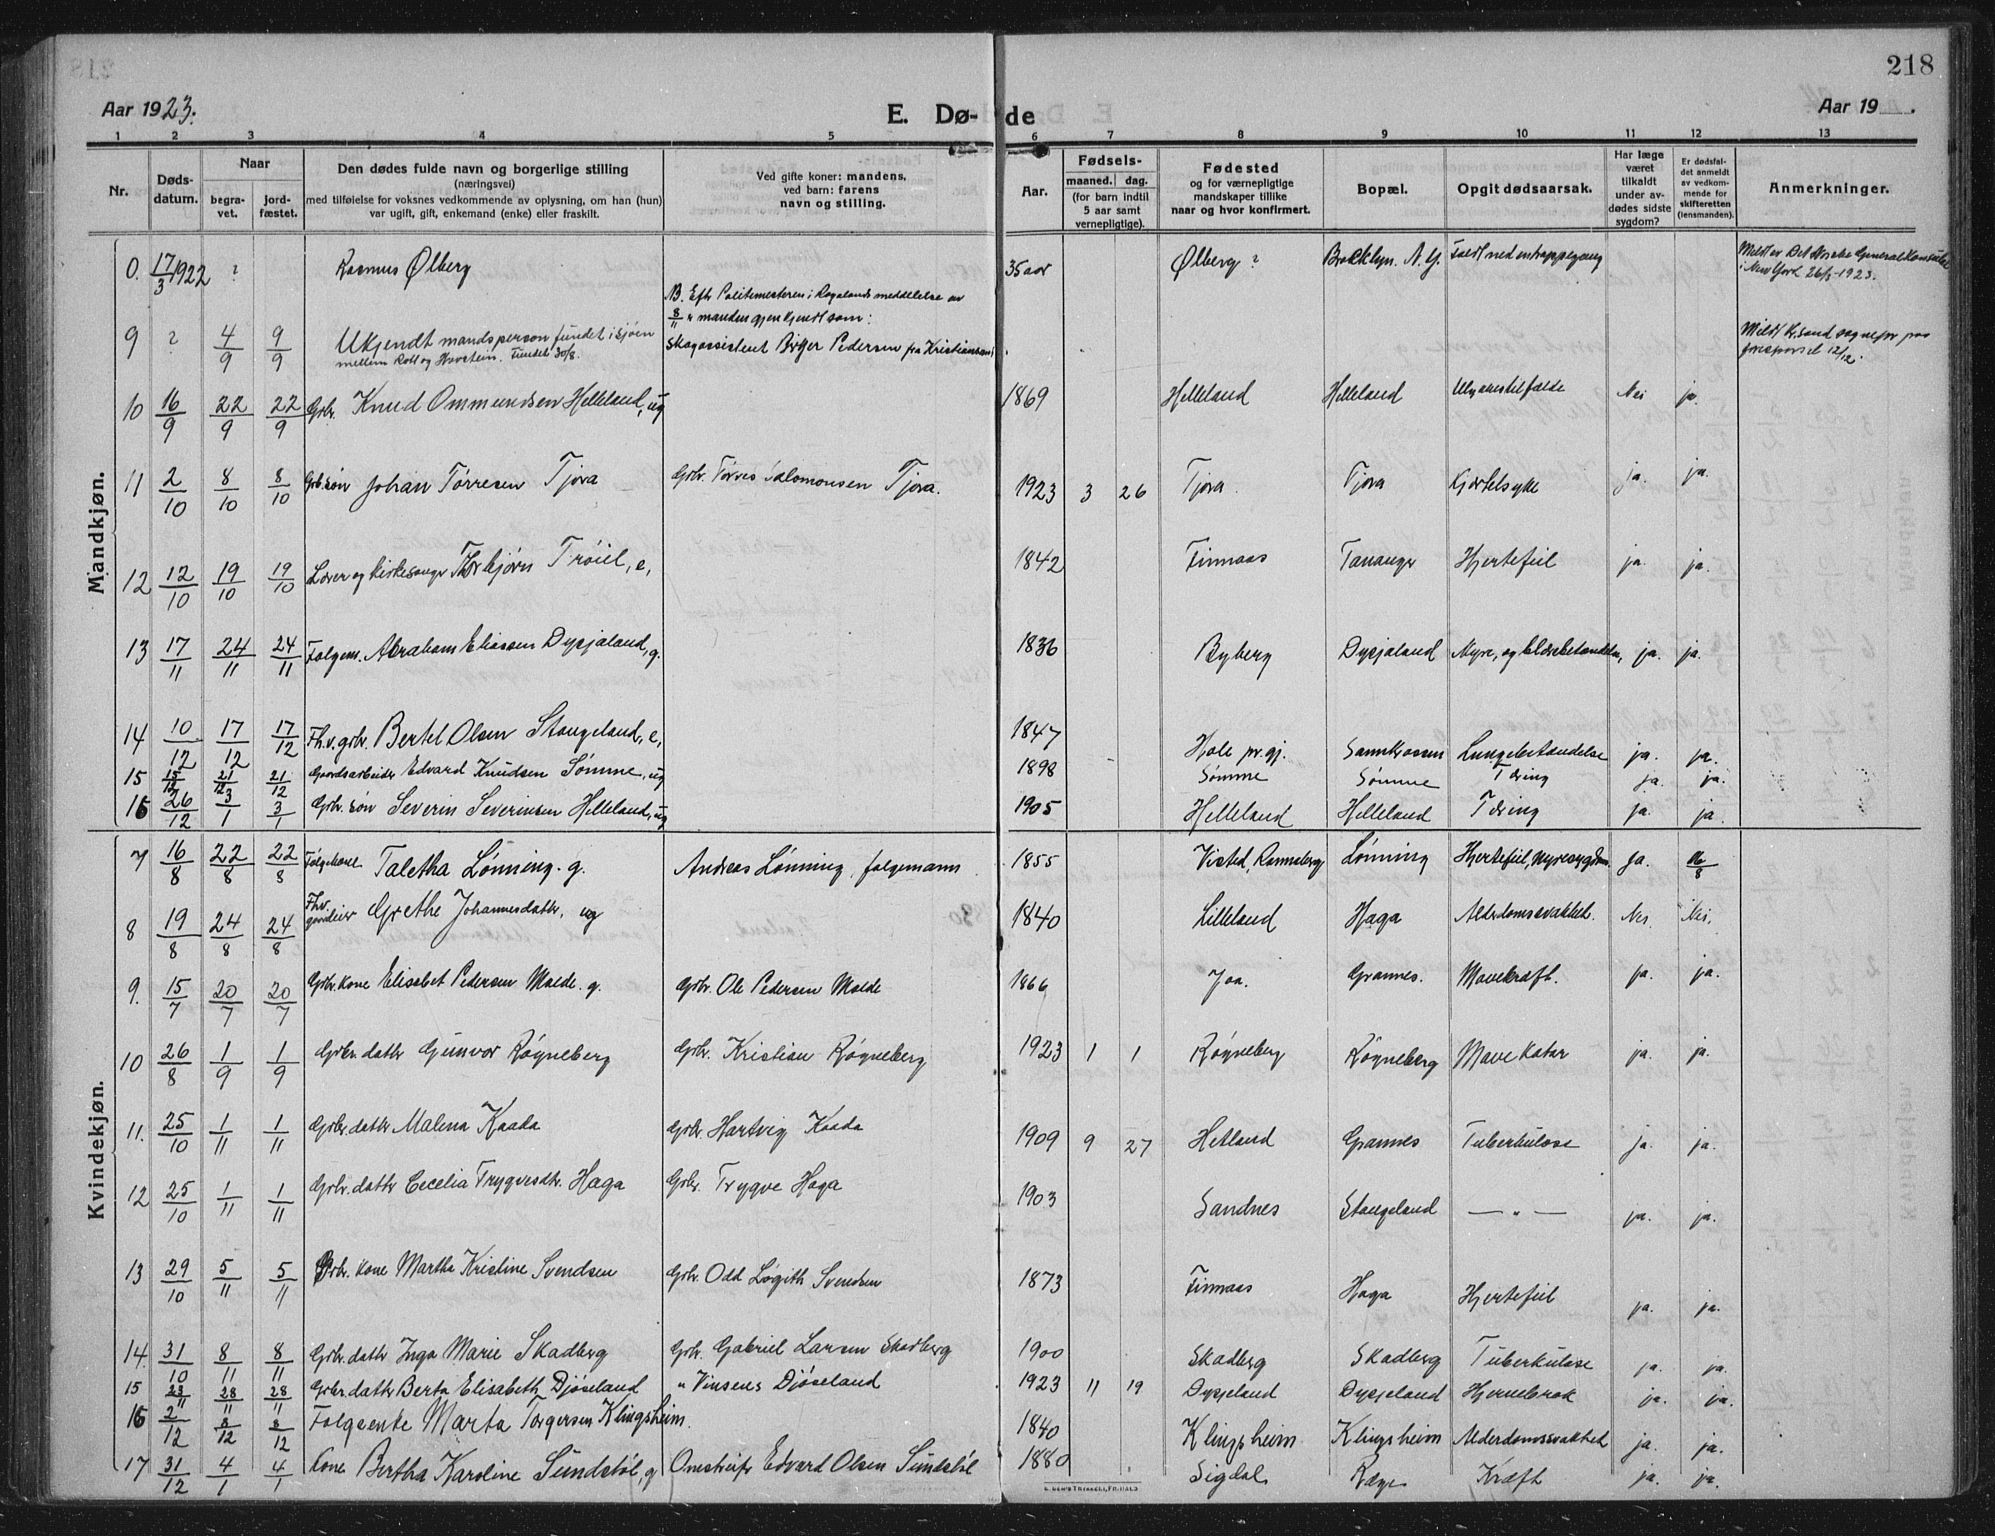 218
Aar 1923. E. Dø- de Aar 19 .
1 2 3 4 5 6 7 8 9 10 11 12 13
Nr. Døds-datum. Naar begra-vet. jord-fæstet. Den dødes fulde navn og borgerlige stilling (næringsvei) med tilføielse for voksnes vedkommende av oplysning, om han (hun) var ugift, gift, enkemand (enke) eller fraskilt. Ved gifte koner: mandens, ved barn: farens navn og stilling. Aar. Fødsels- maaned. dag. (for barn indtil 5 aar samt vernepligtige). Fødested og for værnepligtige mandskaper tillike naar og hvor konfirmert. Bopæl. Opgit dødsaarsak. Har læge været tilkaldt under av-dødes sidste sygdom? Er dødsfal-det anmeldt av vedkom-mende for skifteretten (lensmanden). Anmerkninger.
Mandkjøn.
0. 17/3 1922 ? Rasmus Ølberg 35 aar Ølberg? Brokklyn. N.Y. Faldt ned en trappegang Meldt av Det Norske Generalkonsulat i New York 26/5-1923.
9 ? 4/9 9/9 Ukjendt mandsperson fundet i sjøen mellem Rott og Havstein. Fundet 30/8. NB. Efter Politimesteren i Rogalands meddelelse av 8/11 er manden gjenkjendt som: Skogassistent Birger Pedersen fra Kristiansand. Meldt Kr.sand sognepr. paa forespørsel 12/12.
10 16/9 22/9 22/9 Grbr. Knud Ommundsen Helleland, ug 1869 Helleland Helleland Ulykkestilfælde Nei ja.
11 2/10 8/10 8/10 Grbr. søn Johan Tørresen Tjora Grbr. Tørres Salomonsen Tjora. 1923 3 26 Tjora. Tjora Kjertelsyke ja. ja.
12 12/10 19/10 19/10 Lærer og kirkesanger Thorbjørn Trøiel, e, 1842 Finnaas Tananger Hjertefeil ja. ja.
13 17/11 24/11 24/11 Følgem. Abraham Eliassen Dysjaland, g. 1836 Byberg Dysjaland Nyre, og blærebetændelse, ja. ja.
14 10/12 17/12 17/12 Fh.v. grbr. Bertel Olsen Stangeland, e, 1847 Hole pr.gj. Sannkrossen Lungebetændelse ja. ja.
15 15/12 21/12 21/12 Gaardsarbeider Edvard Knudsen Sømme, ug 1898 Sømme Sømme Tæring ja. ja.
16 26/12 3/1 3/1 Grbr. søn Severin Severinsen Helleland, ug 1905 Helleland Helleland Tæring ja. ja.
Kvindekjøn.
7 16/8 22/8 22/8 Følgekone Taletha Lønning. g. Andreas Lønning, følgemann 1855 Visted, Rannaberg Lønning Hjertefeil, nyresygdom ja. 16/8
8 19/8 24/8 24/8 Fhv. gaardeier Grethe Johannesdatter, ug 1840 Lilleland Haga Alderdomssvakhet. Nei. Nei.
9. 15/7 20/7 20/7 Grbr. kone Elisabet Pedersen Molde. g. Grbr. Ole Pedersen Molde 1866 Joa. Grannes. Mavekræft. ja. ja.
10 26/8 1/9 1/9 Grbr. datter Gunvor Røgneberg Grbr. Kristian Røgneberg 1923 1 1 Røgneberg Røgneberg Mave katar ja. ja.
11. 25/10 1/11 1/11 Grbr. datter Malena Kaada Grbr. Hartvig Kaada 1909 9 27 Hetland Grannes Tuberkulose ja. ja.
12 25/10 1/11 1/11 Grbr. datter Cecelia Trygvesdtr. Haga Grbr. Trygve Haga 1903 Sandnes Stangeland — " — ja. ja.
13 29/10 5/11 5/11 Grbr. kone Martha Kristine Svendsen Grbr. Odd Løgith Svendsen 1873 Finnaas Haga Hjertefeil ja. ja.
14. 31/10 8/11 8/11 Grbr. datter Inga Marie Skadberg Grbr. Gabriel Larsen Skadberg 1900 Skadberg Skadberg Tuberkulose ja. ja.
15 23/11 28/11 28/11 Grbr. datter Berta Elisabeth Djøseland " Vinsens Djøseland 1923 11 19 Dysjeland Dysjeland Hjernebrok ja. ja.
16 2/12 8/12 8/12 Følgeenke Marta Torgersen Klingsheim. 1840 Klingsheim Klingsheim Alderdomssvakhet ja. ja.
17 31/12 4/1 4/1 Kone Bertha Karoline Sundstøl, g Edvard Olsen Sundstøl 1880 Sigdal Ræge Kræft ja. ja.